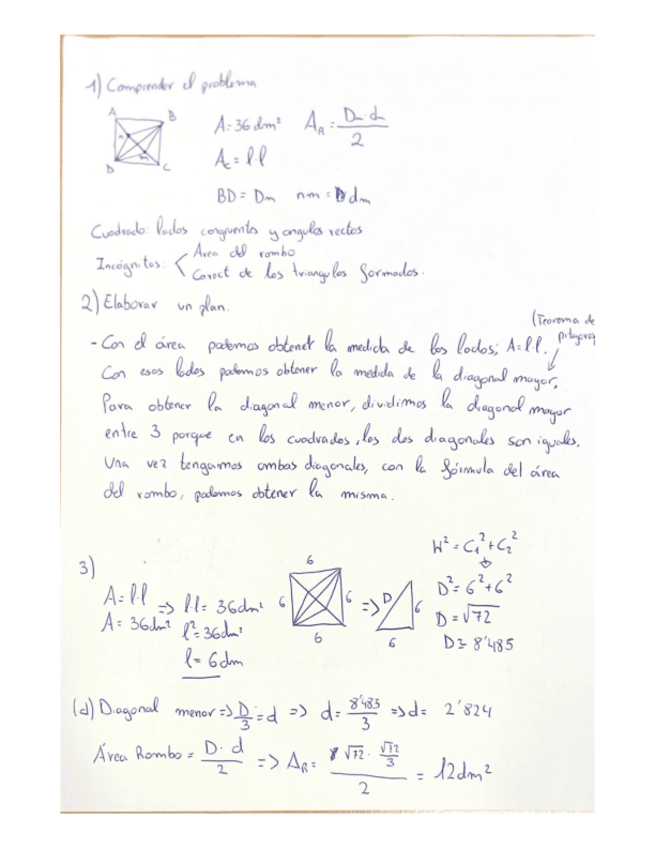 1) Comprender el problema
A B D C n m
A=36 dm² A_R = Dm·dm / 2
A_c = l·l
BD = Dm nm = dm
Cuadrado: lados congruentes y angulos rectos
Incógnitas: < Area del rombo
Caract de los triangulos formados.
2) Elaborar un plan.
(Teorema de
- Con el área podemos obtener la medida de los lados; A=l·l. pitagoras
Con esos lados podemos obtener la medida de la diagonal mayor,
Para obtener la diagonal menor, dividimos la diagonal mayor
entre 3 porque en los cuadrados, las dos diagonales son iguales.
Una vez tengamos ambas diagonales, con la fórmula del área
del rombo, podemos obtener la misma.
3)
A=l·l
A=36dm² => l·l=36dm²
l²=36dm²
l=6dm
6 6 6 6 => D 6 6
H²=C₁²+C₂²
D²=6²+6²
D=√72
D=8'485
(d) Diagonal menor => D/3 = d => d= 8'485/3 => d= 2'824
Área Rombo = D·d / 2 => A_R = √72 · √72/3 / 2 = 12dm²